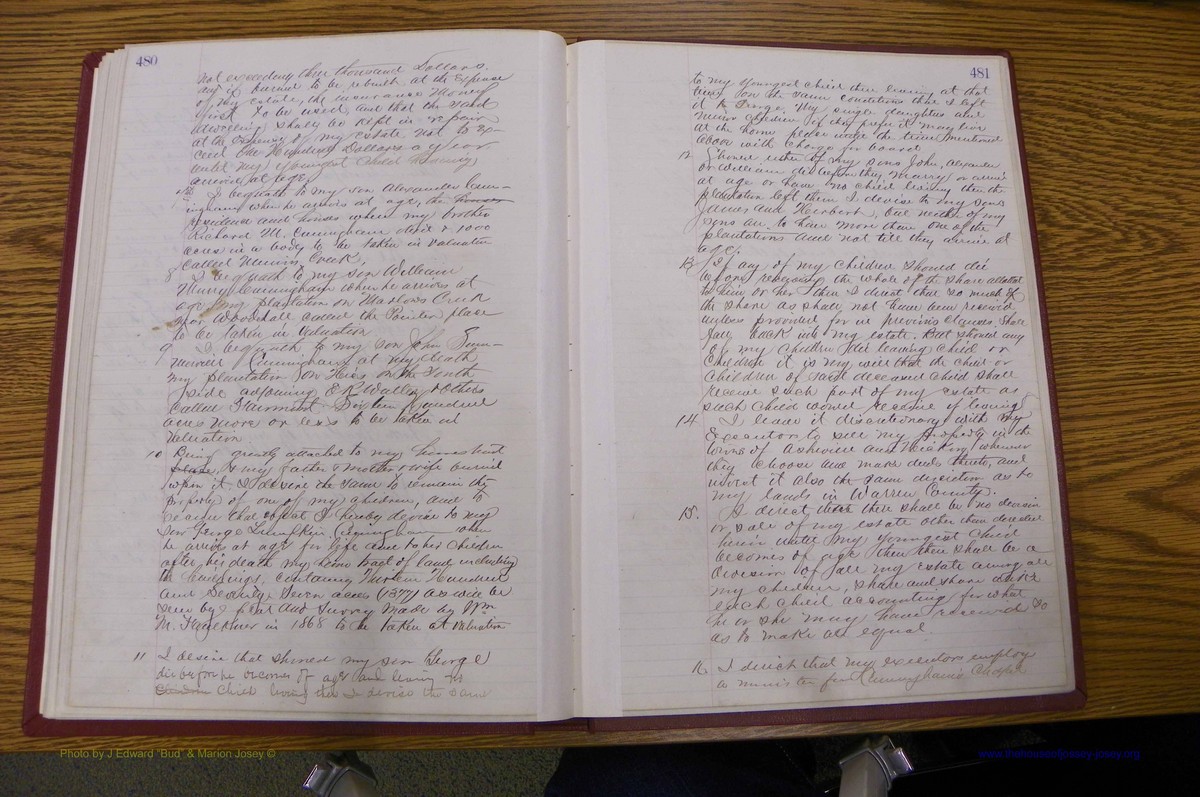 480
not exceeding three thousand Dollars.
any if burned to be rebuilt at the expense
of my estate, the insurance money
first to be used and that the said
dwelling shall be kept in repair
at the expense of my estate not to ex-
ceed One Hundred Dollars a year
until my youngest child living
arrives at age.
I bequeath to my son Alexander Cunn-
ingham when he arrives at age, the
residence and houses where my brother
Richard M. Cunningham died & 1000
acres in a body to be taken in valuation
called Creek.
8 I bequeath to my son William
Henry Cunningham when he arrives at
age my plantation on Marlows Creek
near Woodsdale called the Pointer place
to be taken in valuation
9 I bequeath to my son John
Cunningham at my death
my plantation on Hico on the South
side adjoining others
called Fairmont Hundred
acres more or less to be taken in
valuation
10 Being greatly attached to my home
& my father & mother & wife buried
upon it I desire the same to remain the
property of one of my children, and to
secure that I hereby devise to my
son George Lumpkin Cunningham when
he arrives at age for life and to his children
after his death my home tract of land including
the buildings, containing Thirteen Hundred
and Seventy Seven acres (1377) as will be
seen by plat and survey made by Wm
M. Faulkner in 1868 to be taken at valuation
11 I desire that should my son George
die before he becomes of age and leaving no
child living then I devise the same
481
to my youngest child then living at that
time on the same conditions that I left
it to George. My single daughters and
minor children if they prefer it may live
at the home place under the terms mentioned
above with charge for board
12 Should either of my sons John, Alexander
or William die before they marry or arrive
at age or have no child living then the
plantation left them I devise to my sons
James and Herbert, but neither of my
sons are to have more than one of the
plantations and not till they arrive at
age.
13 If any of my children should die
before receiving the whole of the share allotted
to him or her then I direct that so much of
the share as shall not have been received
unless provided for in previous clauses, shall
fall back into my estate. But should any
of my children die leaving child or
children it is my will that the child or
children of said deceased child shall
receive such part of my estate as
such child would receive if living
14 I leave it discretionary with my
Executors to sell my property in the
towns of Asheville and whenever
they choose and make deeds thereto, and
invest it also the same discretion as to
my lands in Warren County.
15. I direct that there shall be no division
or sale of my estate other than directed
herein until my youngest child
becomes of age then there shall be a
division of all my estate among all
my children, share and share alike
each child accounting for what
he or she may have received so
as to make all equal.
16 I direct that my executors employ
a minister for Cunninghams Chapel
Photo by J Edward "Bud" & Marion Josey ©